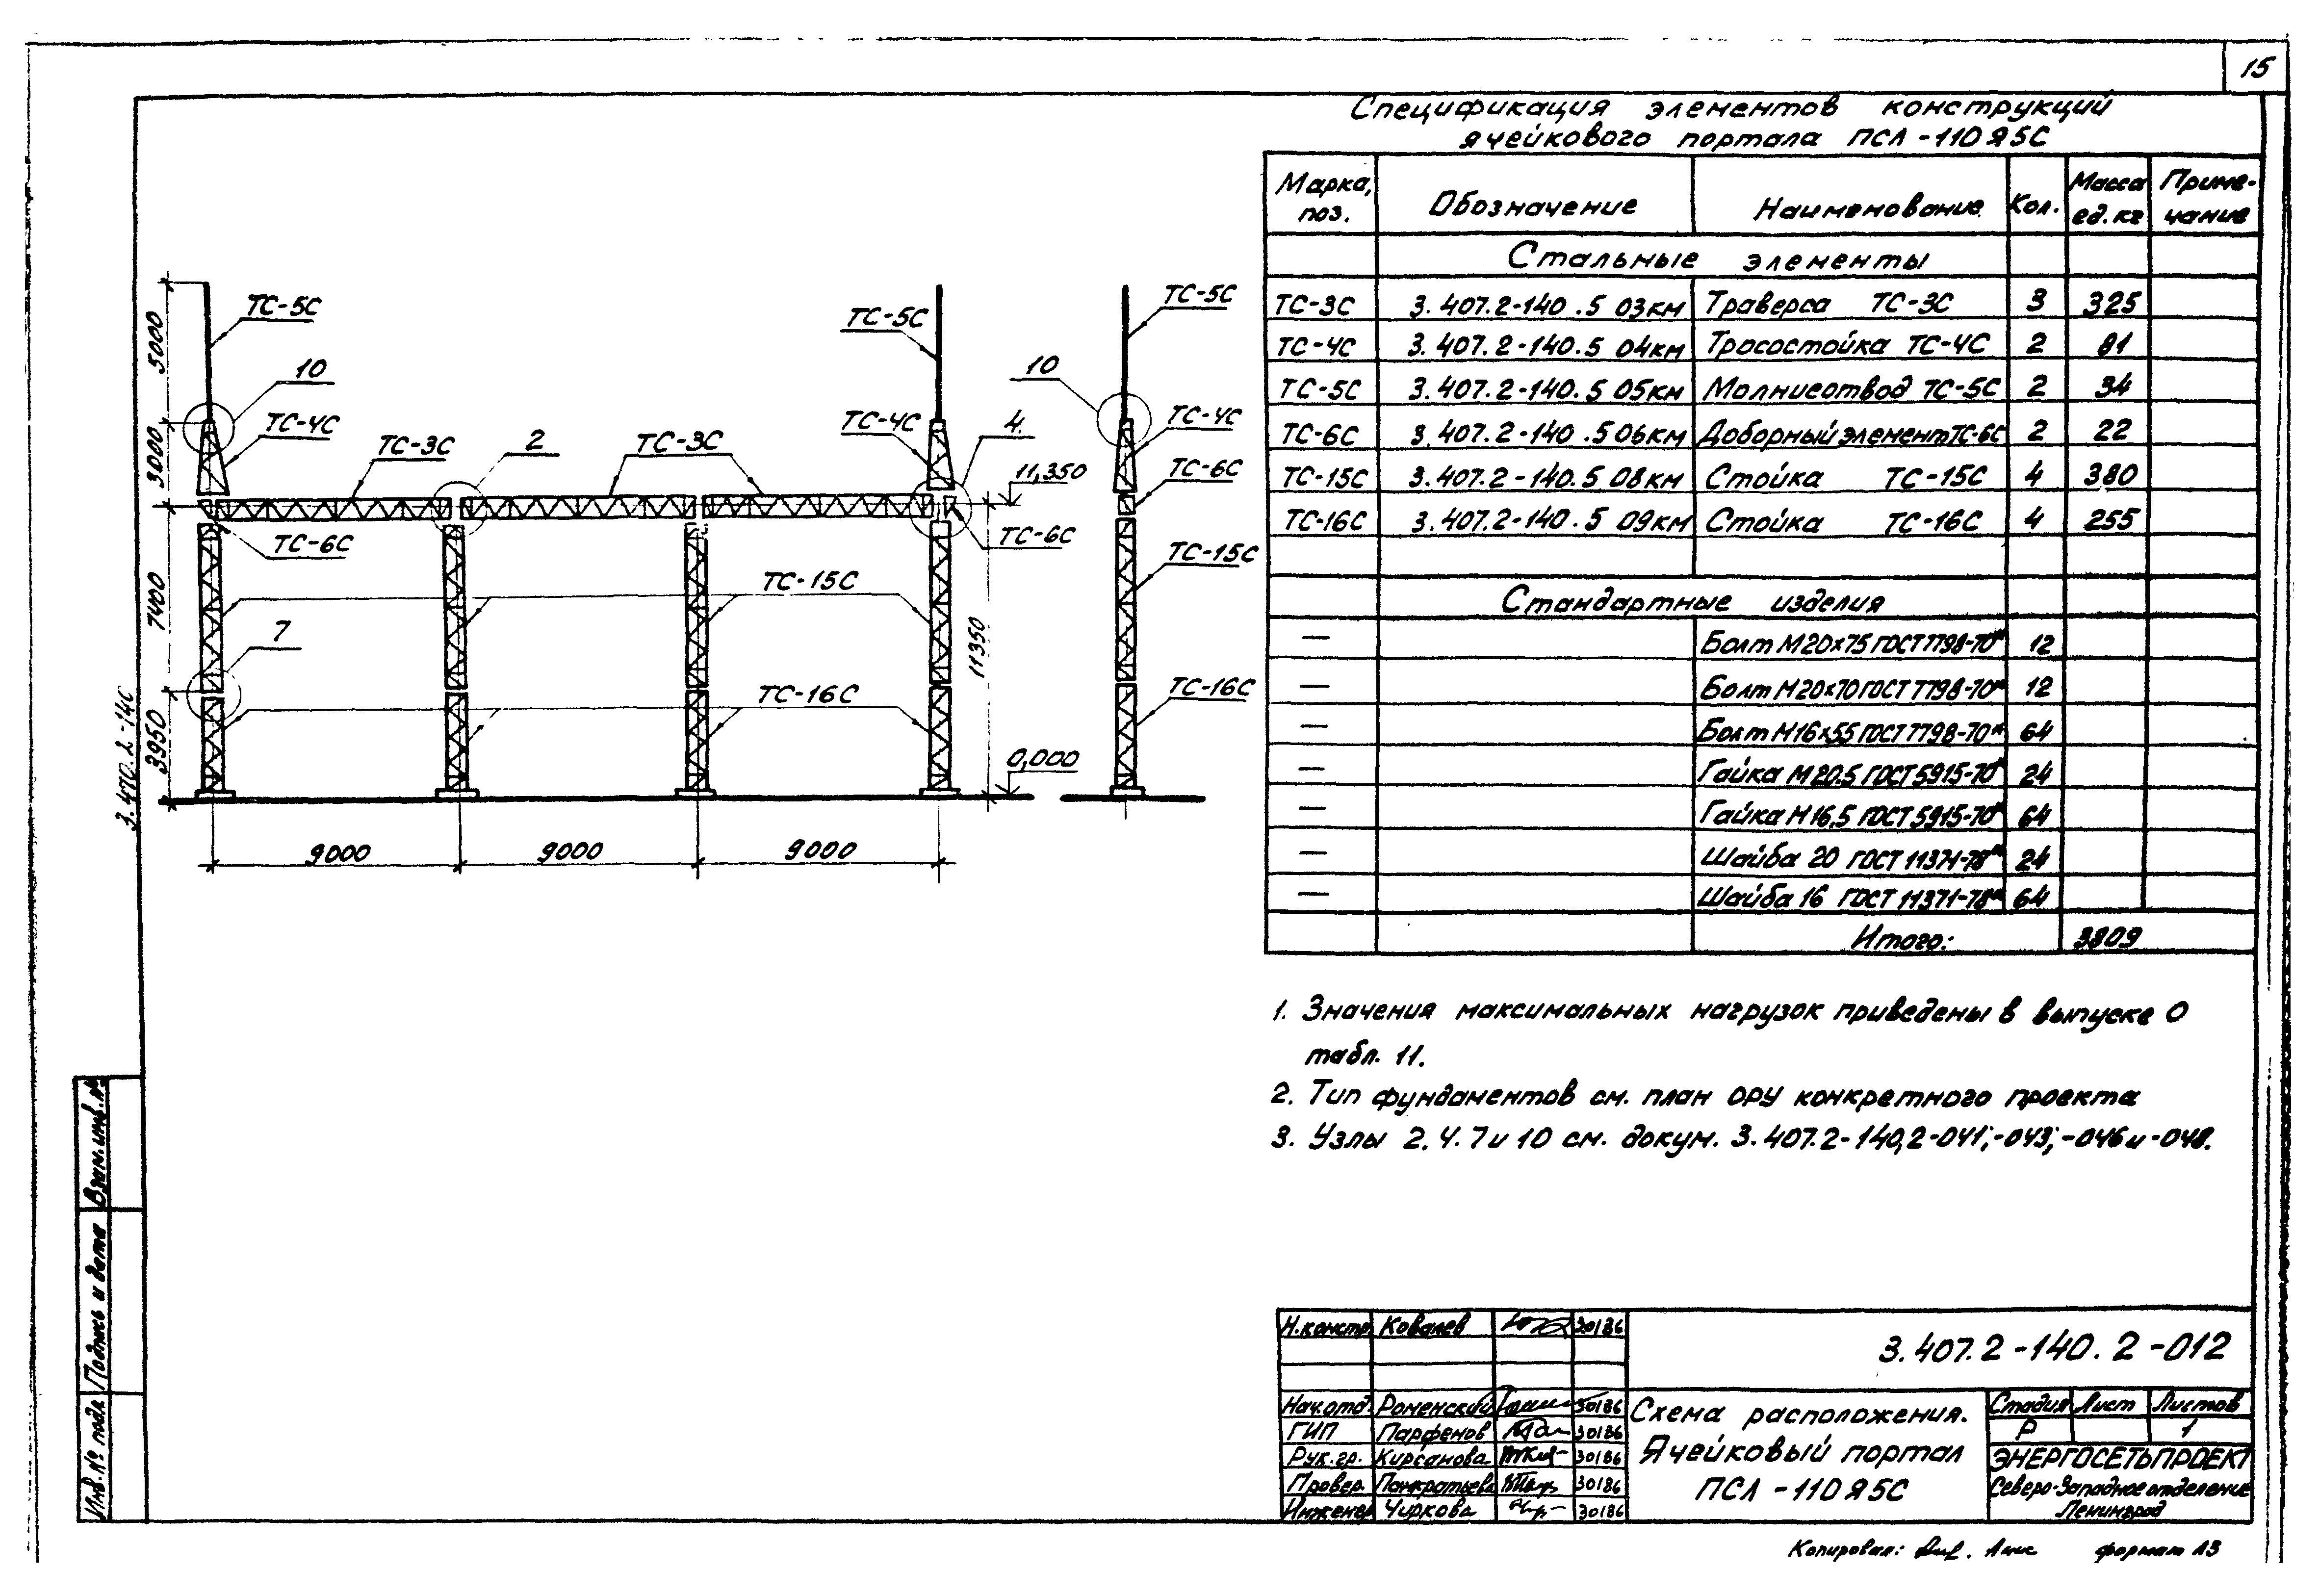 15
Спецификация элементов конструкций
ячейкового портала ПСЛ-110Я5С
Марка, поз. Обозначение Наименование Кол. Масса ед.кг Примечание
Стальные элементы
ТС-3С 3.407.2-140.5 03км Траверса ТС-3С 3 325
ТС-4С 3.407.2-140.5 04км Тросостойка ТС-4С 2 81
ТС-5С 3.407.2-140.5 05км Молниеотвод ТС-5С 2 34
ТС-6С 3.407.2-140.5 06км Доборный элемент ТС-6С 2 22
ТС-15С 3.407.2-140.5 08км Стойка ТС-15С 4 380
ТС-16С 3.407.2-140.5 09км Стойка ТС-16С 4 255
Стандартные изделия
— Болт М20×75 ГОСТ 7798-70* 12
— Болт М20×70 ГОСТ 7798-70* 12
— Болт М16×55 ГОСТ 7798-70* 64
— Гайка М20.5 ГОСТ 5915-70* 24
— Гайка М16.5 ГОСТ 5915-70* 64
— Шайба 20 ГОСТ 11371-78* 24
— Шайба 16 ГОСТ 11371-78* 64
Итого: 3809
ТС-5С
ТС-5С
ТС-5С
10
10
ТС-4С
ТС-4С
ТС-4С
4
ТС-3С
2
ТС-3С
11,350
ТС-6С
ТС-6С
ТС-6С
ТС-15С
ТС-15С
7
ТС-16С
ТС-16С
0,000
5000
3000
7400
3950
11350
9000
9000
9000
3.470.2-140
1. Значения максимальных нагрузок приведены в выпуске 0
табл. 11.
2. Тип фундаментов см. план ОРУ конкретного проекта
3. Узлы 2. 4. 7 и 10 см. докум. 3.407.2-140,2-041;-043;-046 и -048.
Инв.№ подл Подпись и дата Взам.инв.№
Н.констр. Ковалев 30186
3.407.2-140.2-012
Нач.отд. Роменский 30186
ГИП Парфенов 30186
Рук.гр. Кирсанова 30186
Провер. Панкратьева 30186
Инженер Чиркова 30186
Схема расположения.
Ячейковый портал
ПСЛ-110Я5С
Стадия Лист Листов
Р 1
ЭНЕРГОСЕТЬПРОЕКТ
Северо-Западное отделение
Ленинград
Копировал: формат А3